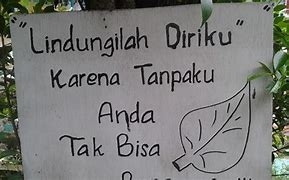 "Lindungilah Diriku"
Karena Tanpaku
Anda
Tak Bisa